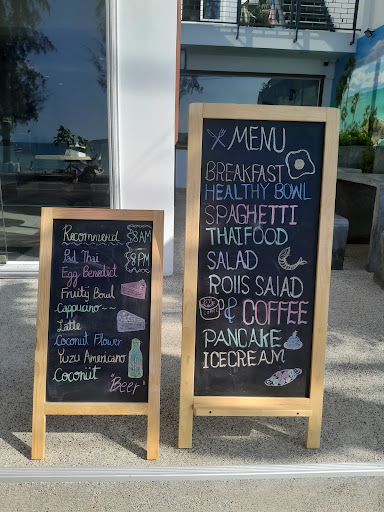 Recommend
8AM
8PM
Pad Thai
Egg Benedict
Fruity Bowl
Cappucino
Latte
Coconut Flower
Yuzu Americano
Coconut
"Beer"
MENU
BREAKFAST
HEALTHY BOWL
SPAGHETTI
THAIFOOD
SALAD
ROllS SALAD
& COFFEE
PANCAKE
ICECREAM